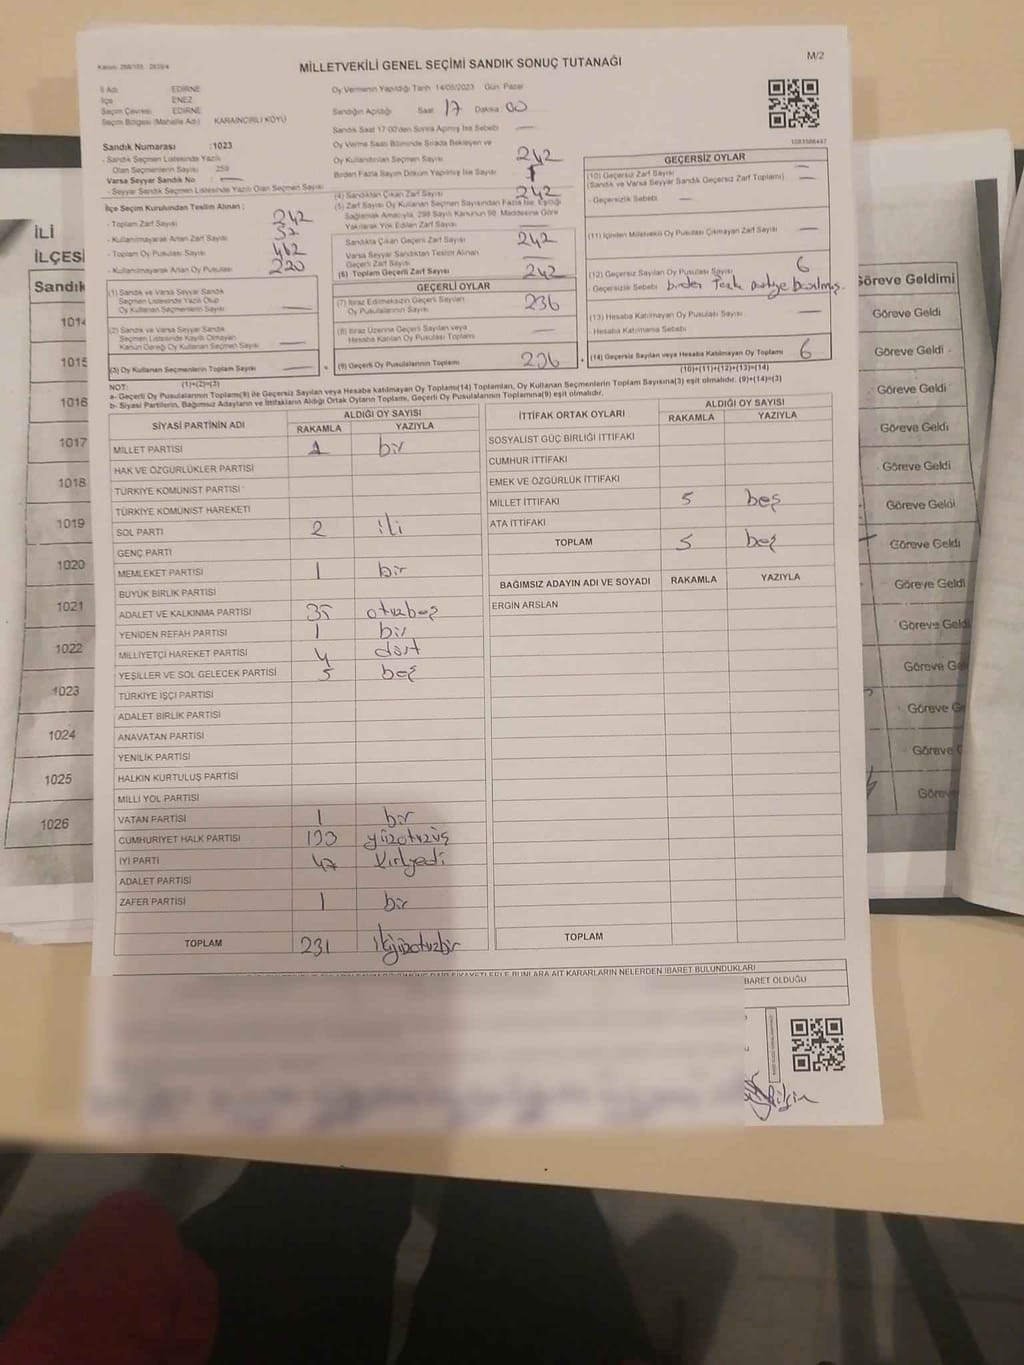 Kanun: 298/105 2839/4
MİLLETVEKİLİ GENEL SEÇİMİ SANDIK SONUÇ TUTANAĞI
M/2
İl Adı EDİRNE
İlçe ENEZ
Seçim Çevresi EDİRNE
Seçim Bölgesi (Mahalle Adı) KARAİNCİRLİ KÖYÜ
Sandık Numarası :1023
- Sandık Seçmen Listesinde Yazılı
Olan Seçmenlerin Sayısı 259
Varsa Seyyar Sandık No : —
- Seyyar Sandık Seçmen Listesinde Yazılı Olan Seçmen Sayısı
İlçe Seçim Kurulundan Teslim Alınan ;
- Toplam Zarf Sayısı 242
- Kullanılmayarak Artan Zarf Sayısı
- Toplam Oy Pusulası Sayısı 462
- Kullanılmayarak Artan Oy Pusulası 220
(1) Sandık ve Varsa Seyyar Sandık
Seçmen Listesinde Yazılı Olup
Oy Kullanan Seçmenlerin Sayısı —
(2) Sandık ve Varsa Seyyar Sandık
Seçmen Listesinde Kayıtlı Olmayan
Kanun Gereği Oy Kullanan Seçmen Sayısı —
(3) Oy Kullanan Seçmenlerin Toplam Sayısı —
(1)+(2)=(3)
Oy Vermenin Yapıldığı Tarih 14/05/2023 Gün Pazar
Sandığın Açıldığı Saat 17 Dakika 00
Sandık Saat 17:00'den Sonra Açılmış İse Sebebi —
Oy Verme Saati Bitiminde Sırada Bekleyen ve
Oy Kullandırılan Seçmen Sayısı 242
Birden Fazla Sayım Döküm Yapılmış İse Sayısı
(4) Sandıktan Çıkan Zarf Sayısı 242
(5) Zarf Sayısı Oy Kullanan Seçmen Sayısından Fazla İse, Eşitliği
Sağlamak Amacıyla, 298 Sayılı Kanunun 98. Maddesine Göre
Yakılarak Yok Edilen Zarf Sayısı —
Sandıkta Çıkan Geçerli Zarf Sayısı 242
Varsa Seyyar Sandıktan Teslim Alınan
Geçerli Zarf Sayısı —
(6) Toplam Geçerli Zarf Sayısı 242
GEÇERLİ OYLAR
(7) İtiraz Edilmeksizin Geçerli Sayılan
Oy Pusulalarının Sayısı 236
(8) İtiraz Üzerine Geçerli Sayılan veya
Hesaba Katılan Oy Pusulası Toplamı —
(9) Geçerli Oy Pusulalarının Toplamı 236
GEÇERSİZ OYLAR
(10) Geçersiz Zarf Sayısı —
(Sandık ve Varsa Seyyar Sandık Geçersiz Zarf Toplamı)
- Geçersizlik Sebebi —
(11) İçinden Milletvekili Oy Pusulası Çıkmayan Zarf Sayısı —
(12) Geçersiz Sayılan Oy Pusulası Sayısı 6
- Geçersizlik Sebebi birden
(13) Hesaba Katılmayan Oy Pusulası Sayısı —
- Hesaba Katılmama Sebebi
(14) Geçersiz Sayılan veya Hesaba Katılmayan Oy Toplamı 6
(10)+(11)+(12)+(13)=(14)
NOT:
a- Geçerli Oy Pusulalarının Toplamı(9) ile Geçersiz Sayılan veya Hesaba katılmayan Oy Toplamı(14) Toplamları, Oy Kullanan Seçmenlerin Toplam Sayısına(3) eşit olmalıdır. (9)+(14)=(3)
b- Siyasi Partilerin, Bağımsız Adayların ve İttifakların Aldığı Ortak Oyların Toplamı, Geçerli Oy Pusulalarının Toplamına(9) eşit olmalıdır.
SİYASİ PARTİNİN ADI ALDIĞI OY SAYISI
RAKAMLA YAZIYLA
MİLLET PARTİSİ 1 bir
HAK VE ÖZGÜRLÜKLER PARTİSİ
TÜRKİYE KOMÜNİST PARTİSİ
TÜRKİYE KOMÜNİST HAREKETİ
SOL PARTİ 2 iki
GENÇ PARTİ
MEMLEKET PARTİSİ 1 bir
BÜYÜK BİRLİK PARTİSİ
ADALET VE KALKINMA PARTİSİ 35 otuzbeş
YENİDEN REFAH PARTİSİ 1 bir
MİLLİYETÇİ HAREKET PARTİSİ 4 dört
YEŞİLLER VE SOL GELECEK PARTİSİ 5 beş
TÜRKİYE İŞÇİ PARTİSİ
ADALET BİRLİK PARTİSİ
ANAVATAN PARTİSİ
YENİLİK PARTİSİ
HALKIN KURTULUŞ PARTİSİ
MİLLİ YOL PARTİSİ
VATAN PARTİSİ 1 bir
CUMHURİYET HALK PARTİSİ 133 yüzotuzüç
İYİ PARTİ 47 kırkyedi
ADALET PARTİSİ
ZAFER PARTİSİ 1 bir
TOPLAM 231 ikiyüzotuzbir
İTTİFAK ORTAK OYLARI ALDIĞI OY SAYISI
RAKAMLA YAZIYLA
SOSYALİST GÜÇ BİRLİĞİ İTTİFAKI
CUMHUR İTTİFAKI
EMEK VE ÖZGÜRLÜK İTTİFAKI
MİLLET İTTİFAKI 5 beş
ATA İTTİFAKI
TOPLAM 5 beş
BAĞIMSIZ ADAYIN ADI VE SOYADI RAKAMLA YAZIYLA
ERGİN ARSLAN
TOPLAM
BUNLARA AİT KARARLARIN NELERDEN İBARET BULUNDUKLARI
İBARET OLDUĞU
İLİ
İLÇESİ
Sandık
1014
1015
1016
1017
1018
1019
1020
1021
1022
1023
1024
1025
1026
Göreve Geldimi
Göreve Geldi
Göreve Geldi
Göreve Geldi
Göreve Geldi
Göreve Geldi
Göreve Geldi
Göreve Geldi
Göreve Geldi
Göreve Geld
Göreve Ge
Göreve G
Göreve
Görev